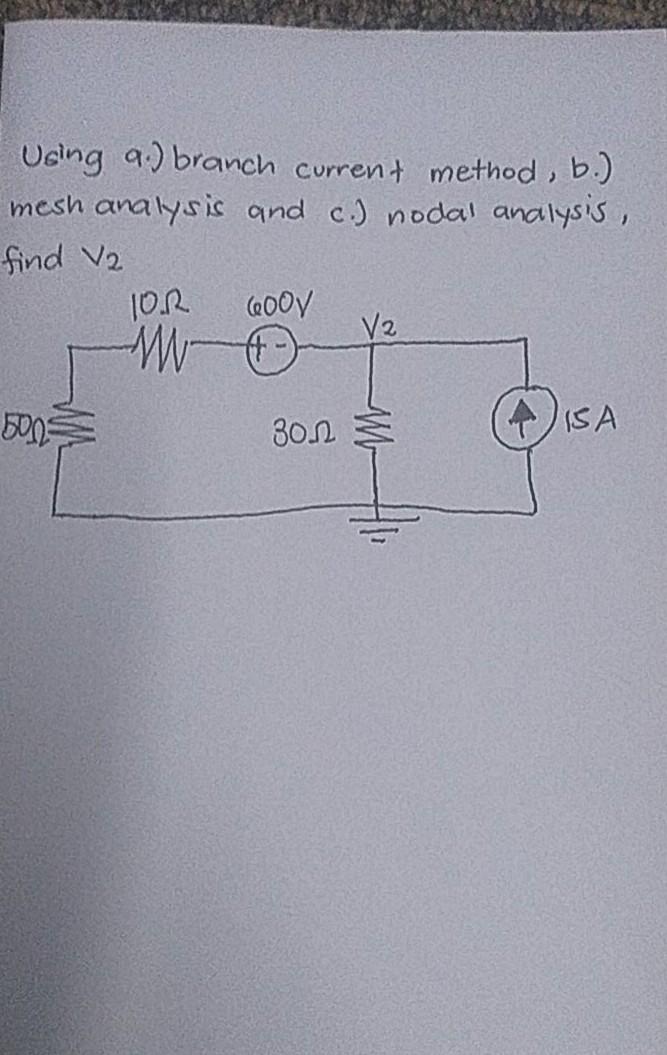 Using a.) branch current method, b.)
mesh analysis and c.) nodal analysis,
find V2
10Ω 600V
V2
+ -
50Ω
30Ω
15 A